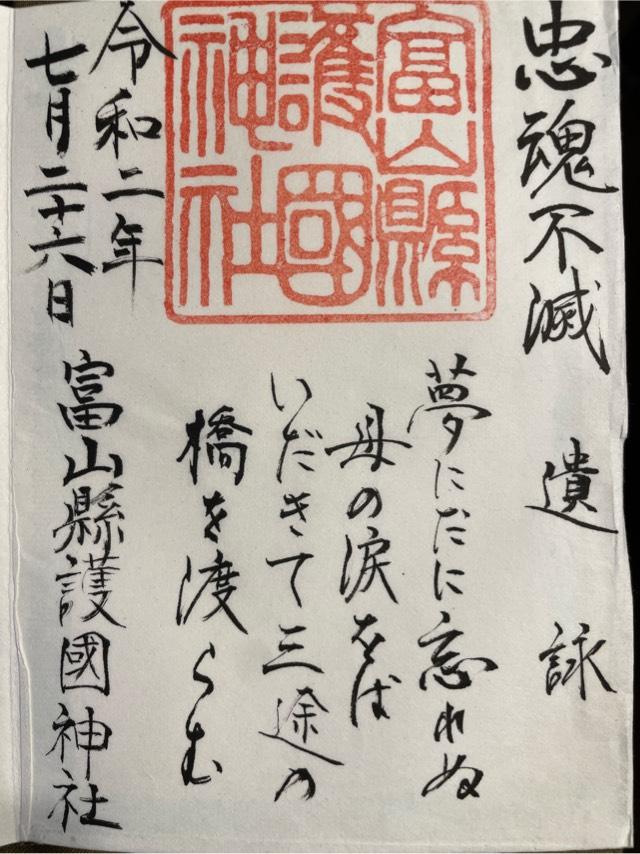 忠魂不滅
遺詠
夢にだに忘れぬ
母の涙をば
いだきて三途の
橋を渡らむ
富山縣
護國
神社
令和二年
七月二十六日
富山縣護國神社